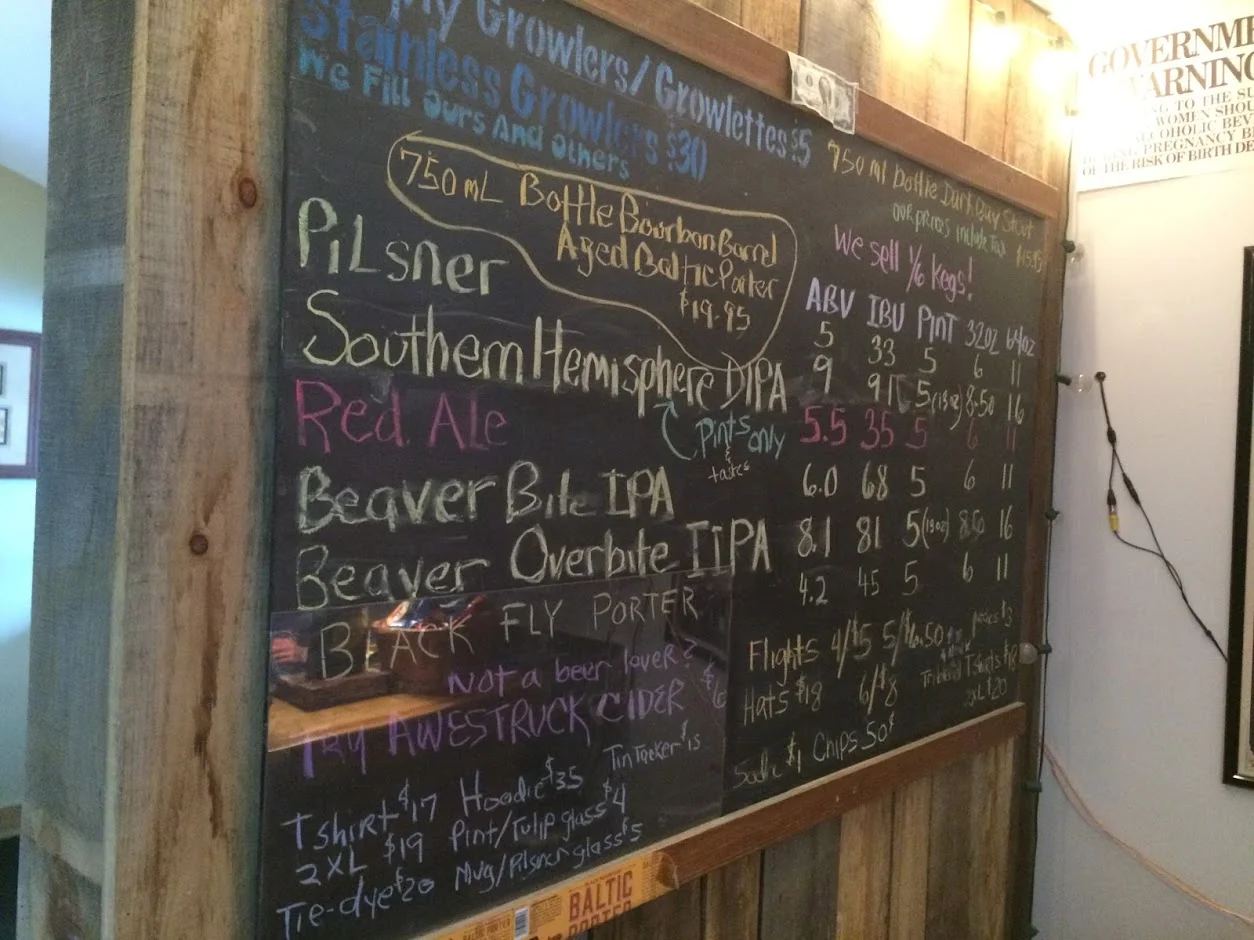 Growlers/Growlettes $5
Stainless Growlers $30
We Fill Ours And Others
750 mL Bottle Bourbon Barrel
Aged Baltic Porter
$19.95
750 ml bottle Dark Bay Stout
our prices include tax
We sell 1/6 Kegs!
ABV IBU PINT 32oz 64oz
Pilsner 5 33 5 6 11
Southern Hemisphere DIPA 9 91 5(13oz) 8.50 16
Pints only
& tastes
Red Ale 5.5 35 5 6 11
Beaver Bite IPA 6.0 68 5 6 11
Beaver Overbite IIPA 8.1 81 5(13oz) 8.50 16
BLACK FLY PORTER 4.2 45 5 6 11
Not a beer lover?
TRY AWESTRUCK CIDER $6
Flights 4/$5 5/$6.50
6/$8
Hats $18
2XL $20
Soda $1 Chips 50¢
Tshirt $17 Hoodie $35 Tin Tacker $15
2XL $19 Pint/Tulip glass $4
Tie-dye $20 Mug/Pilsner glass $5
BALTIC
PORTER
BALTIC PORTER
GOVERNME
WARNING
TO THE SU
WOMEN SHOU
ALCOHOLIC BEV
PREGNANCY B
OF THE RISK OF BIRTH DE